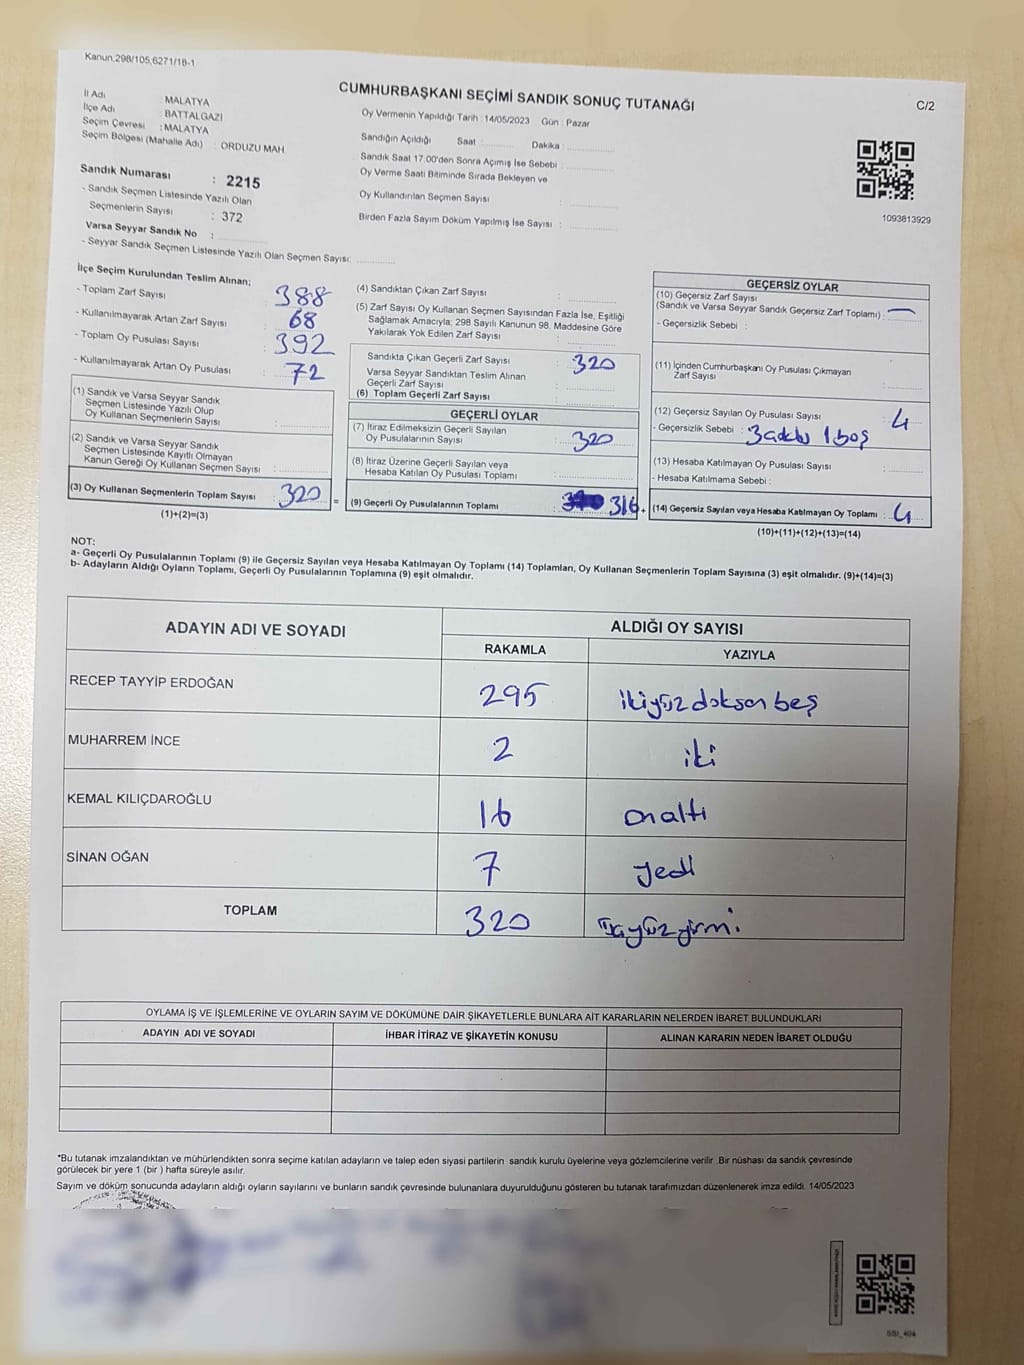 Kanun,298/105,6271/18-1
CUMHURBAŞKANI SEÇİMİ SANDIK SONUÇ TUTANAĞI
C/2
İl Adı : MALATYA
İlçe Adı : BATTALGAZİ
Seçim Çevresi : MALATYA
Seçim Bölgesi (Mahalle Adı) : ORDUZU MAH
Oy Vermenin Yapıldığı Tarih : 14/05/2023 Gün : Pazar
Sandığın Açıldığı Saat : Dakika :
Sandık Saat 17.00'den Sonra Açımış İse Sebebi :
Oy Verme Saati Bitiminde Sırada Bekleyen ve
Oy Kullandırılan Seçmen Sayısı :
Birden Fazla Sayım Döküm Yapılmış İse Sayısı :
1093813929
Sandık Numarası : 2215
- Sandık Seçmen Listesinde Yazılı Olan
Seçmenlerin Sayısı : 372
Varsa Seyyar Sandık No :
- Seyyar Sandık Seçmen Listesinde Yazılı Olan Seçmen Sayısı:
İlçe Seçim Kurulundan Teslim Alınan;
- Toplam Zarf Sayısı : 388
- Kullanılmayarak Artan Zarf Sayısı : 68
- Toplam Oy Pusulası Sayısı : 392
- Kullanılmayarak Artan Oy Pusulası : 72
(1) Sandık ve Varsa Seyyar Sandık
Seçmen Listesinde Yazılı Olup
Oy Kullanan Seçmenlerin Sayısı :
(2) Sandık ve Varsa Seyyar Sandık
Seçmen Listesinde Kayıtlı Olmayan
Kanun Gereği Oy Kullanan Seçmen Sayısı :
(3) Oy Kullanan Seçmenlerin Toplam Sayısı : 320 =
(1)+(2)=(3)
(4) Sandıktan Çıkan Zarf Sayısı :
(5) Zarf Sayısı Oy Kullanan Seçmen Sayısından Fazla İse, Eşitliği
Sağlamak Amacıyla; 298 Sayılı Kanunun 98. Maddesine Göre
Yakılarak Yok Edilen Zarf Sayısı :
Sandıkta Çıkan Geçerli Zarf Sayısı : 320
Varsa Seyyar Sandıktan Teslim Alınan
Geçerli Zarf Sayısı :
(6) Toplam Geçerli Zarf Sayısı :
GEÇERLİ OYLAR
(7) İtiraz Edilmeksizin Geçerli Sayılan
Oy Pusulalarının Sayısı : 320
(8) İtiraz Üzerine Geçerli Sayılan veya
Hesaba Katılan Oy Pusulası Toplamı :
(9) Geçerli Oy Pusulalarının Toplamı : 316 +
GEÇERSİZ OYLAR
(10) Geçersiz Zarf Sayısı
(Sandık ve Varsa Seyyar Sandık Geçersiz Zarf Toplamı) : —
- Geçersizlik Sebebi :
(11) İçinden Cumhurbaşkanı Oy Pusulası Çıkmayan
Zarf Sayısı :
(12) Geçersiz Sayılan Oy Pusulası Sayısı : 4
- Geçersizlik Sebebi : 3 addu 1 boş
(13) Hesaba Katılmayan Oy Pusulası Sayısı :
- Hesaba Katılmama Sebebi :
(14) Geçersiz Sayılan veya Hesaba Katılmayan Oy Toplamı : 4
(10)+(11)+(12)+(13)=(14)
NOT:
a- Geçerli Oy Pusulalarının Toplamı (9) ile Geçersiz Sayılan veya Hesaba Katılmayan Oy Toplamı (14) Toplamları, Oy Kullanan Seçmenlerin Toplam Sayısına (3) eşit olmalıdır. (9)+(14)=(3)
b- Adayların Aldığı Oyların Toplamı, Geçerli Oy Pusulalarının Toplamına (9) eşit olmalıdır.
ADAYIN ADI VE SOYADI
ALDIĞI OY SAYISI
RAKAMLA YAZIYLA
RECEP TAYYİP ERDOĞAN 295 ikiyüz doksan beş
MUHARREM İNCE 2 iki
KEMAL KILIÇDAROĞLU 16 onaltı
SİNAN OĞAN 7 yedi
TOPLAM 320 üçyüzyirmi
OYLAMA İŞ VE İŞLEMLERİNE VE OYLARIN SAYIM VE DÖKÜMÜNE DAİR ŞİKAYETLERLE BUNLARA AİT KARARLARIN NELERDEN İBARET BULUNDUKLARI
ADAYIN ADI VE SOYADI İHBAR İTİRAZ VE ŞİKAYETİN KONUSU ALINAN KARARIN NEDEN İBARET OLDUĞU
*Bu tutanak imzalandıktan ve mühürlendikten sonra seçime katılan adayların ve talep eden siyasi partilerin sandık kurulu üyelerine veya gözlemcilerine verilir .Bir nüshası da sandık çevresinde
görülecek bir yere 1 (bir ) hafta süreyle asılır.
Sayım ve döküm sonucunda adayların aldığı oyların sayılarını ve bunların sandık çevresinde bulunanlara duyurulduğunu gösteren bu tutanak tarafımızdan düzenlenerek imza edildi. 14/05/2023